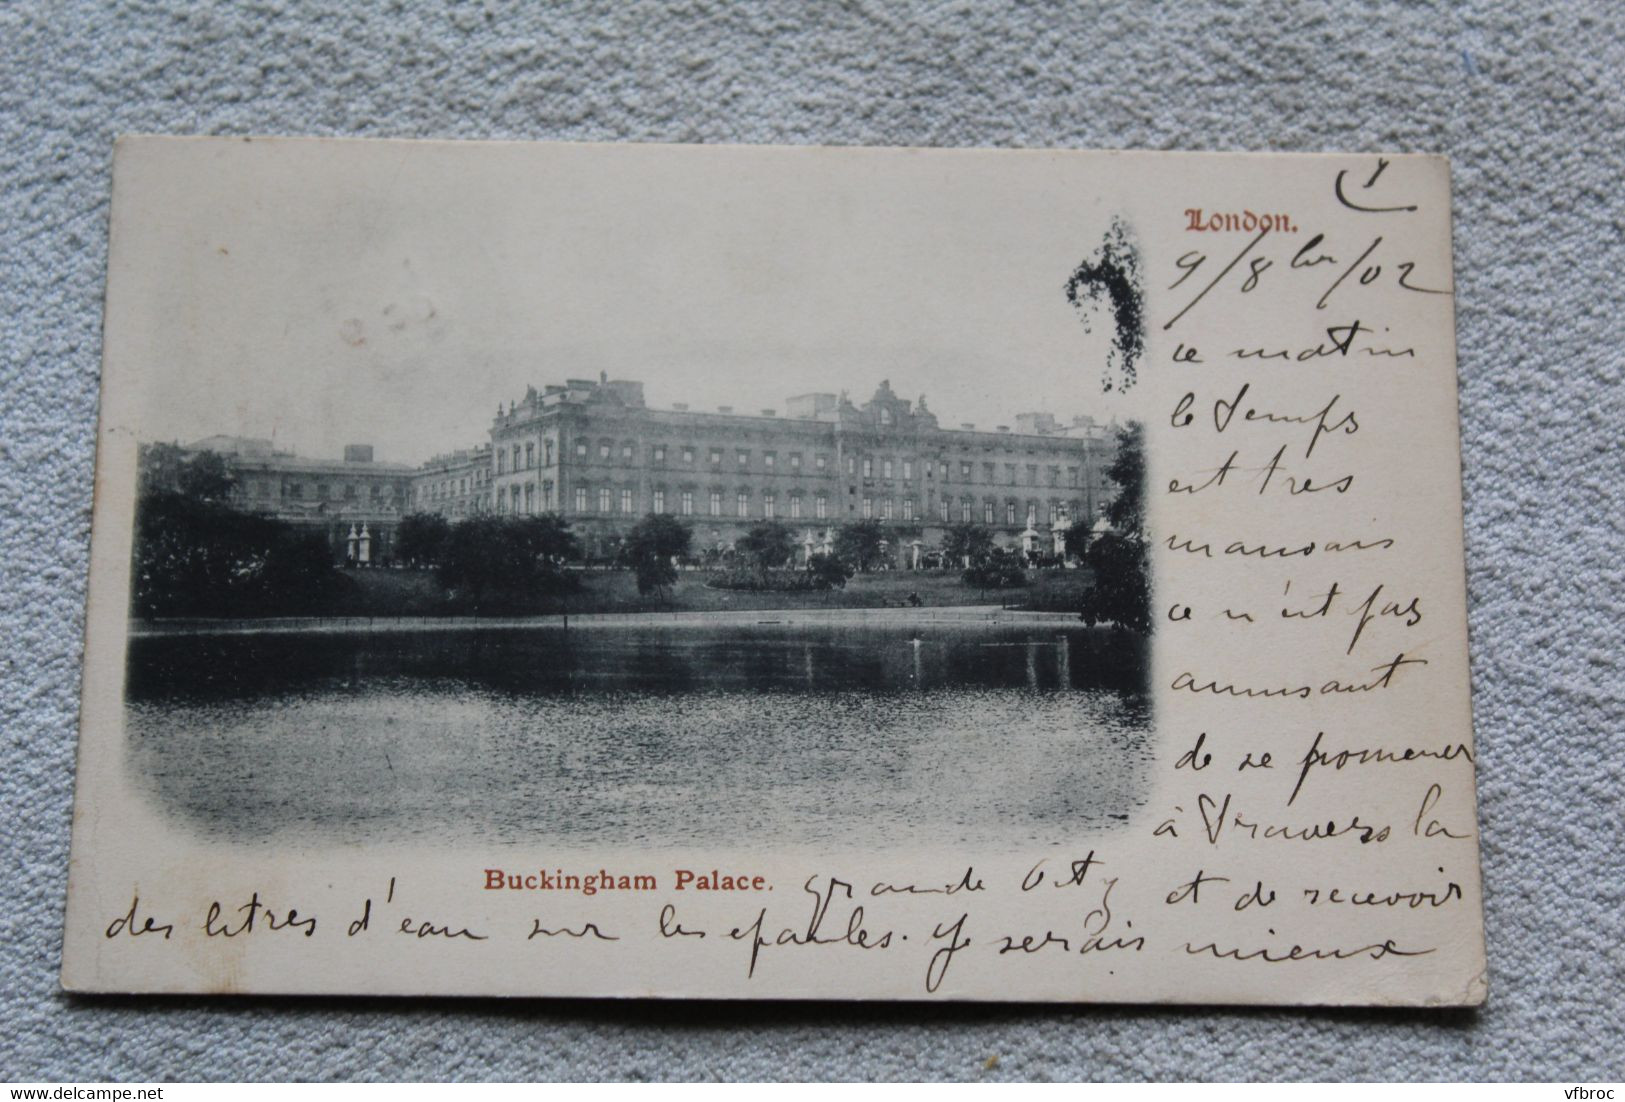 London.
9/8bre/02
ce matin
le temps
est tres
mauvais
ce n'est pas
amusant
de se promener
à travers la
grande City et de recevoir
Buckingham Palace.
des litres d'eau sur les epaules. Je serais mieux
www.delcampe.net
vfbroc